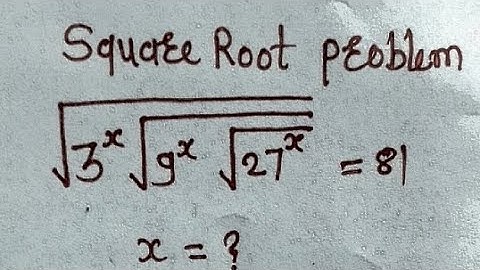 Square Root problem
√(3^x √(9^x √(27^x))) = 81
x = ?